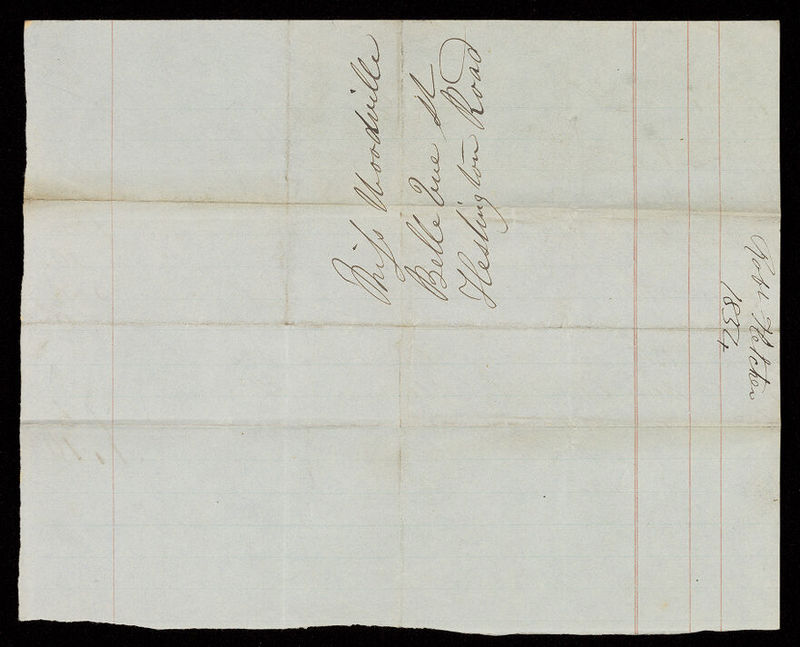 Miss Woodville
Belle Vue St
Heslington Road
Robt Fletcher
1834